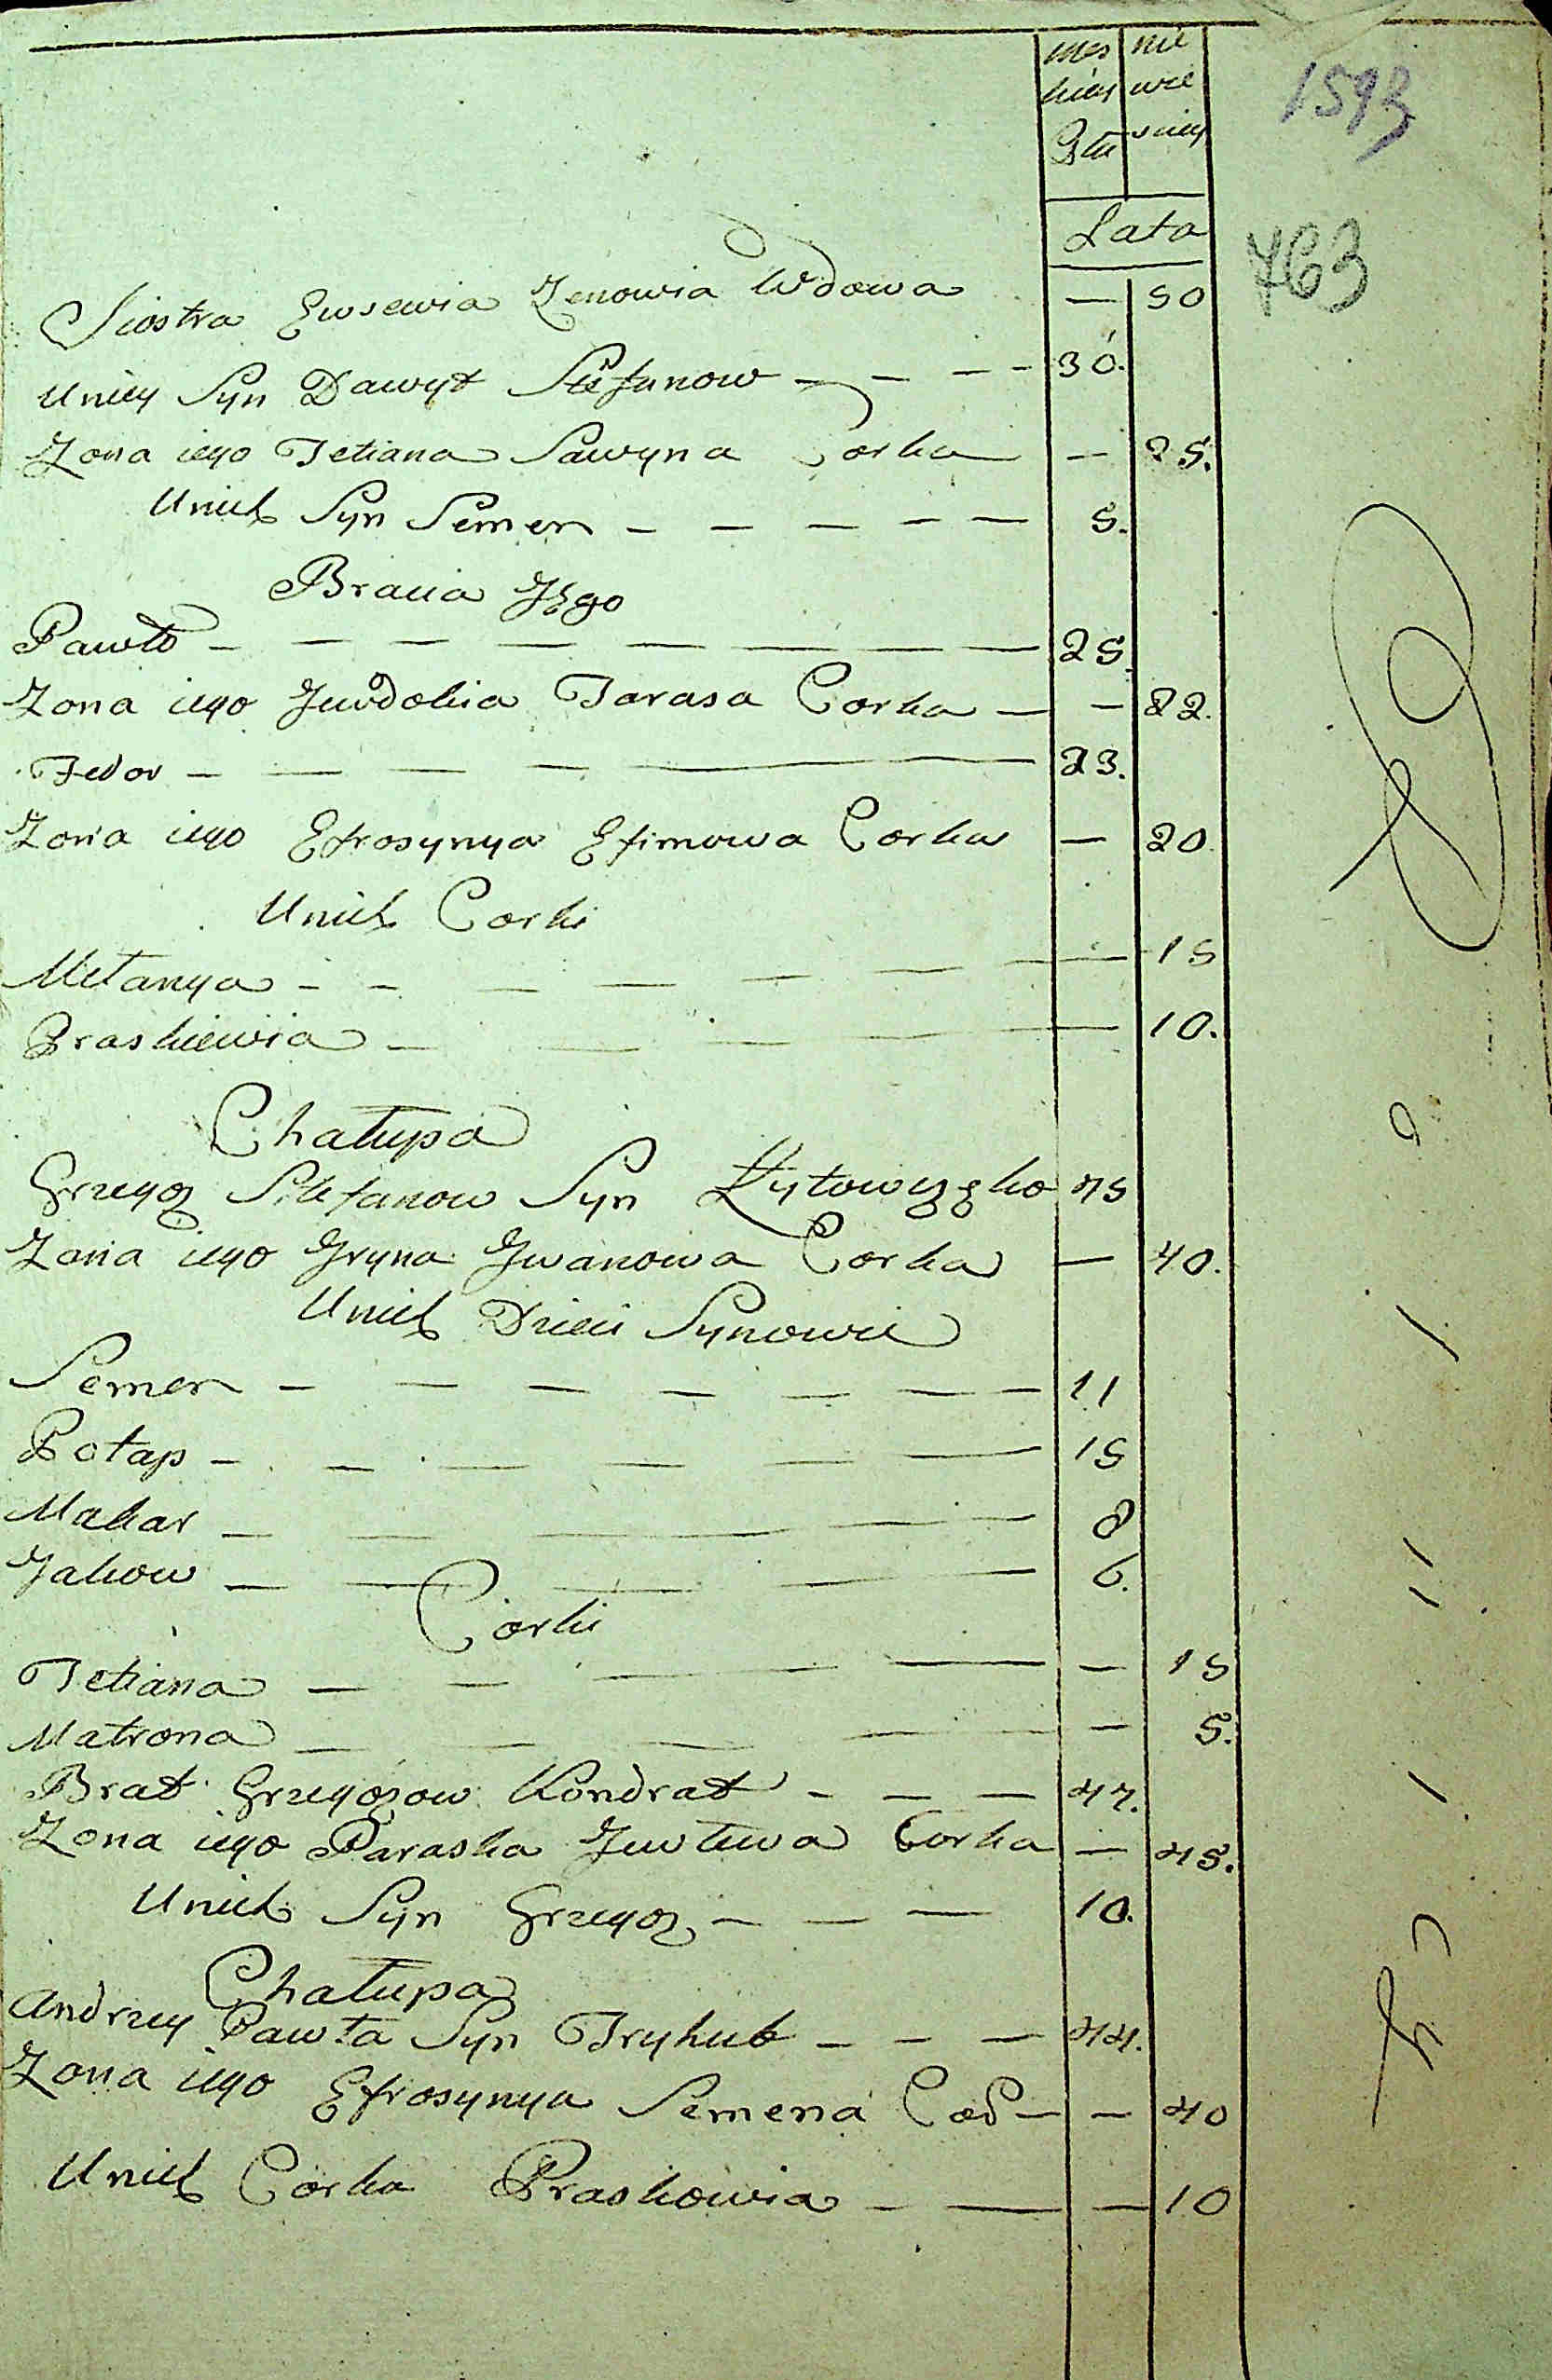 Męs kiey Płci | nie wie sciey
1593
Lata
763
Siostra Ewsewia Zenowia Wdowa — 50
Uniey Syn Dawyd Stefanow - - - - 30.
Zona iego Tetiana Sawyna Corka — 25.
Unich Syn Semen - - - - - 5.
Bracia Jego
Pawło - - - - - - - - 25.
Zona iego Juwdokia Tarasa Corka — — 22.
Fedor - - - - - 23.
Zona iego Efrosynya Efimowa Corka — 20.
Unich Corki
Mełanya - - - - - - - 15
Praskiewia - - - - - 10.
Chałupa
Grzegoz Stefanow Syn 45
Zona iego Jryna Jwanowa Corka — 40.
Unich Dzieci Synowie
Semen - - - - - - - 11
Potap - - - - - - 15
Makar - - - - - - 8
Jakow - - - - - 6.
Corki
Tetiana - - - - - - 15
Matrona - - - - - - 5.
Brat Grzegozow Kondrat - - - 47.
Zona iego Paraska Corka — 45.
Unich Syn Grzegoz - - - 10.
Chałupa
Andrzey Pawła Syn Tryhub - - - 44.
Zona iego Efrosynya Semena Cor — — 40
Unich Corka Praskowia - - - 10